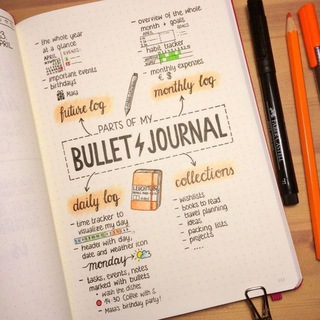 - the whole year
at a glance
APRIL
- important events
- birthdays
Maja
future log
- overview of the whole
month + goals
- habit tracker
- monthly expenses
€ $
monthly log
PARTS OF MY
BULLET JOURNAL
daily log
- time tracker to
visualize my day
- header with day,
date and weather icon
monday →
- tasks, events, notes
marked with bullets
wash the dishes
14:30 Coffee with S.
- Maja's birthday party!
LEUCHTTURM
collections
- wishlists
- books to read
- travel planning
- ideas
- packing lists
- projects
....
3
APRIL
FABER-CASTELL